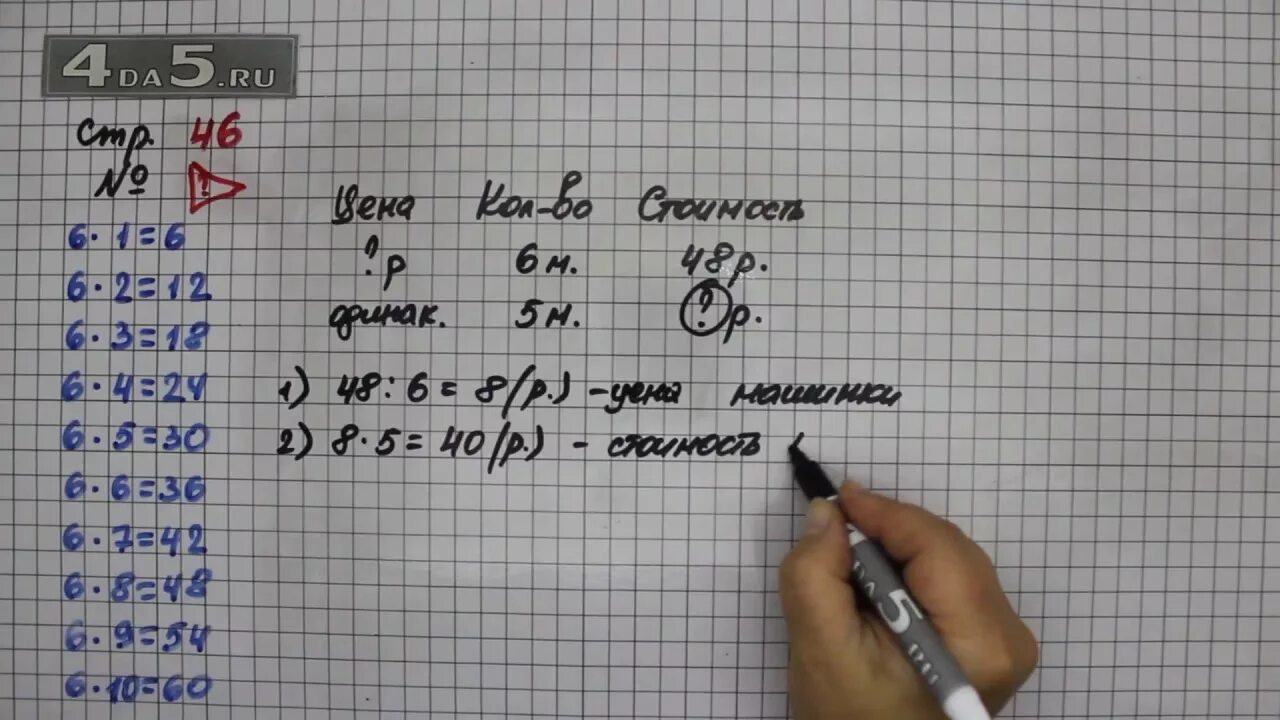 4DA5.RU
Стр. 46
№ !
6·1=6
6·2=12
6·3=18
6·4=24
6·5=30
6·6=36
6·7=42
6·8=48
6·9=54
6·10=60
Цена Кол-во Стоимость
?р 6м. 48р.
одинак. 5м. ?р.
1) 48:6=8(р.) -цена машинки
2) 8·5=40(р.) - стоимость
DA5.RU